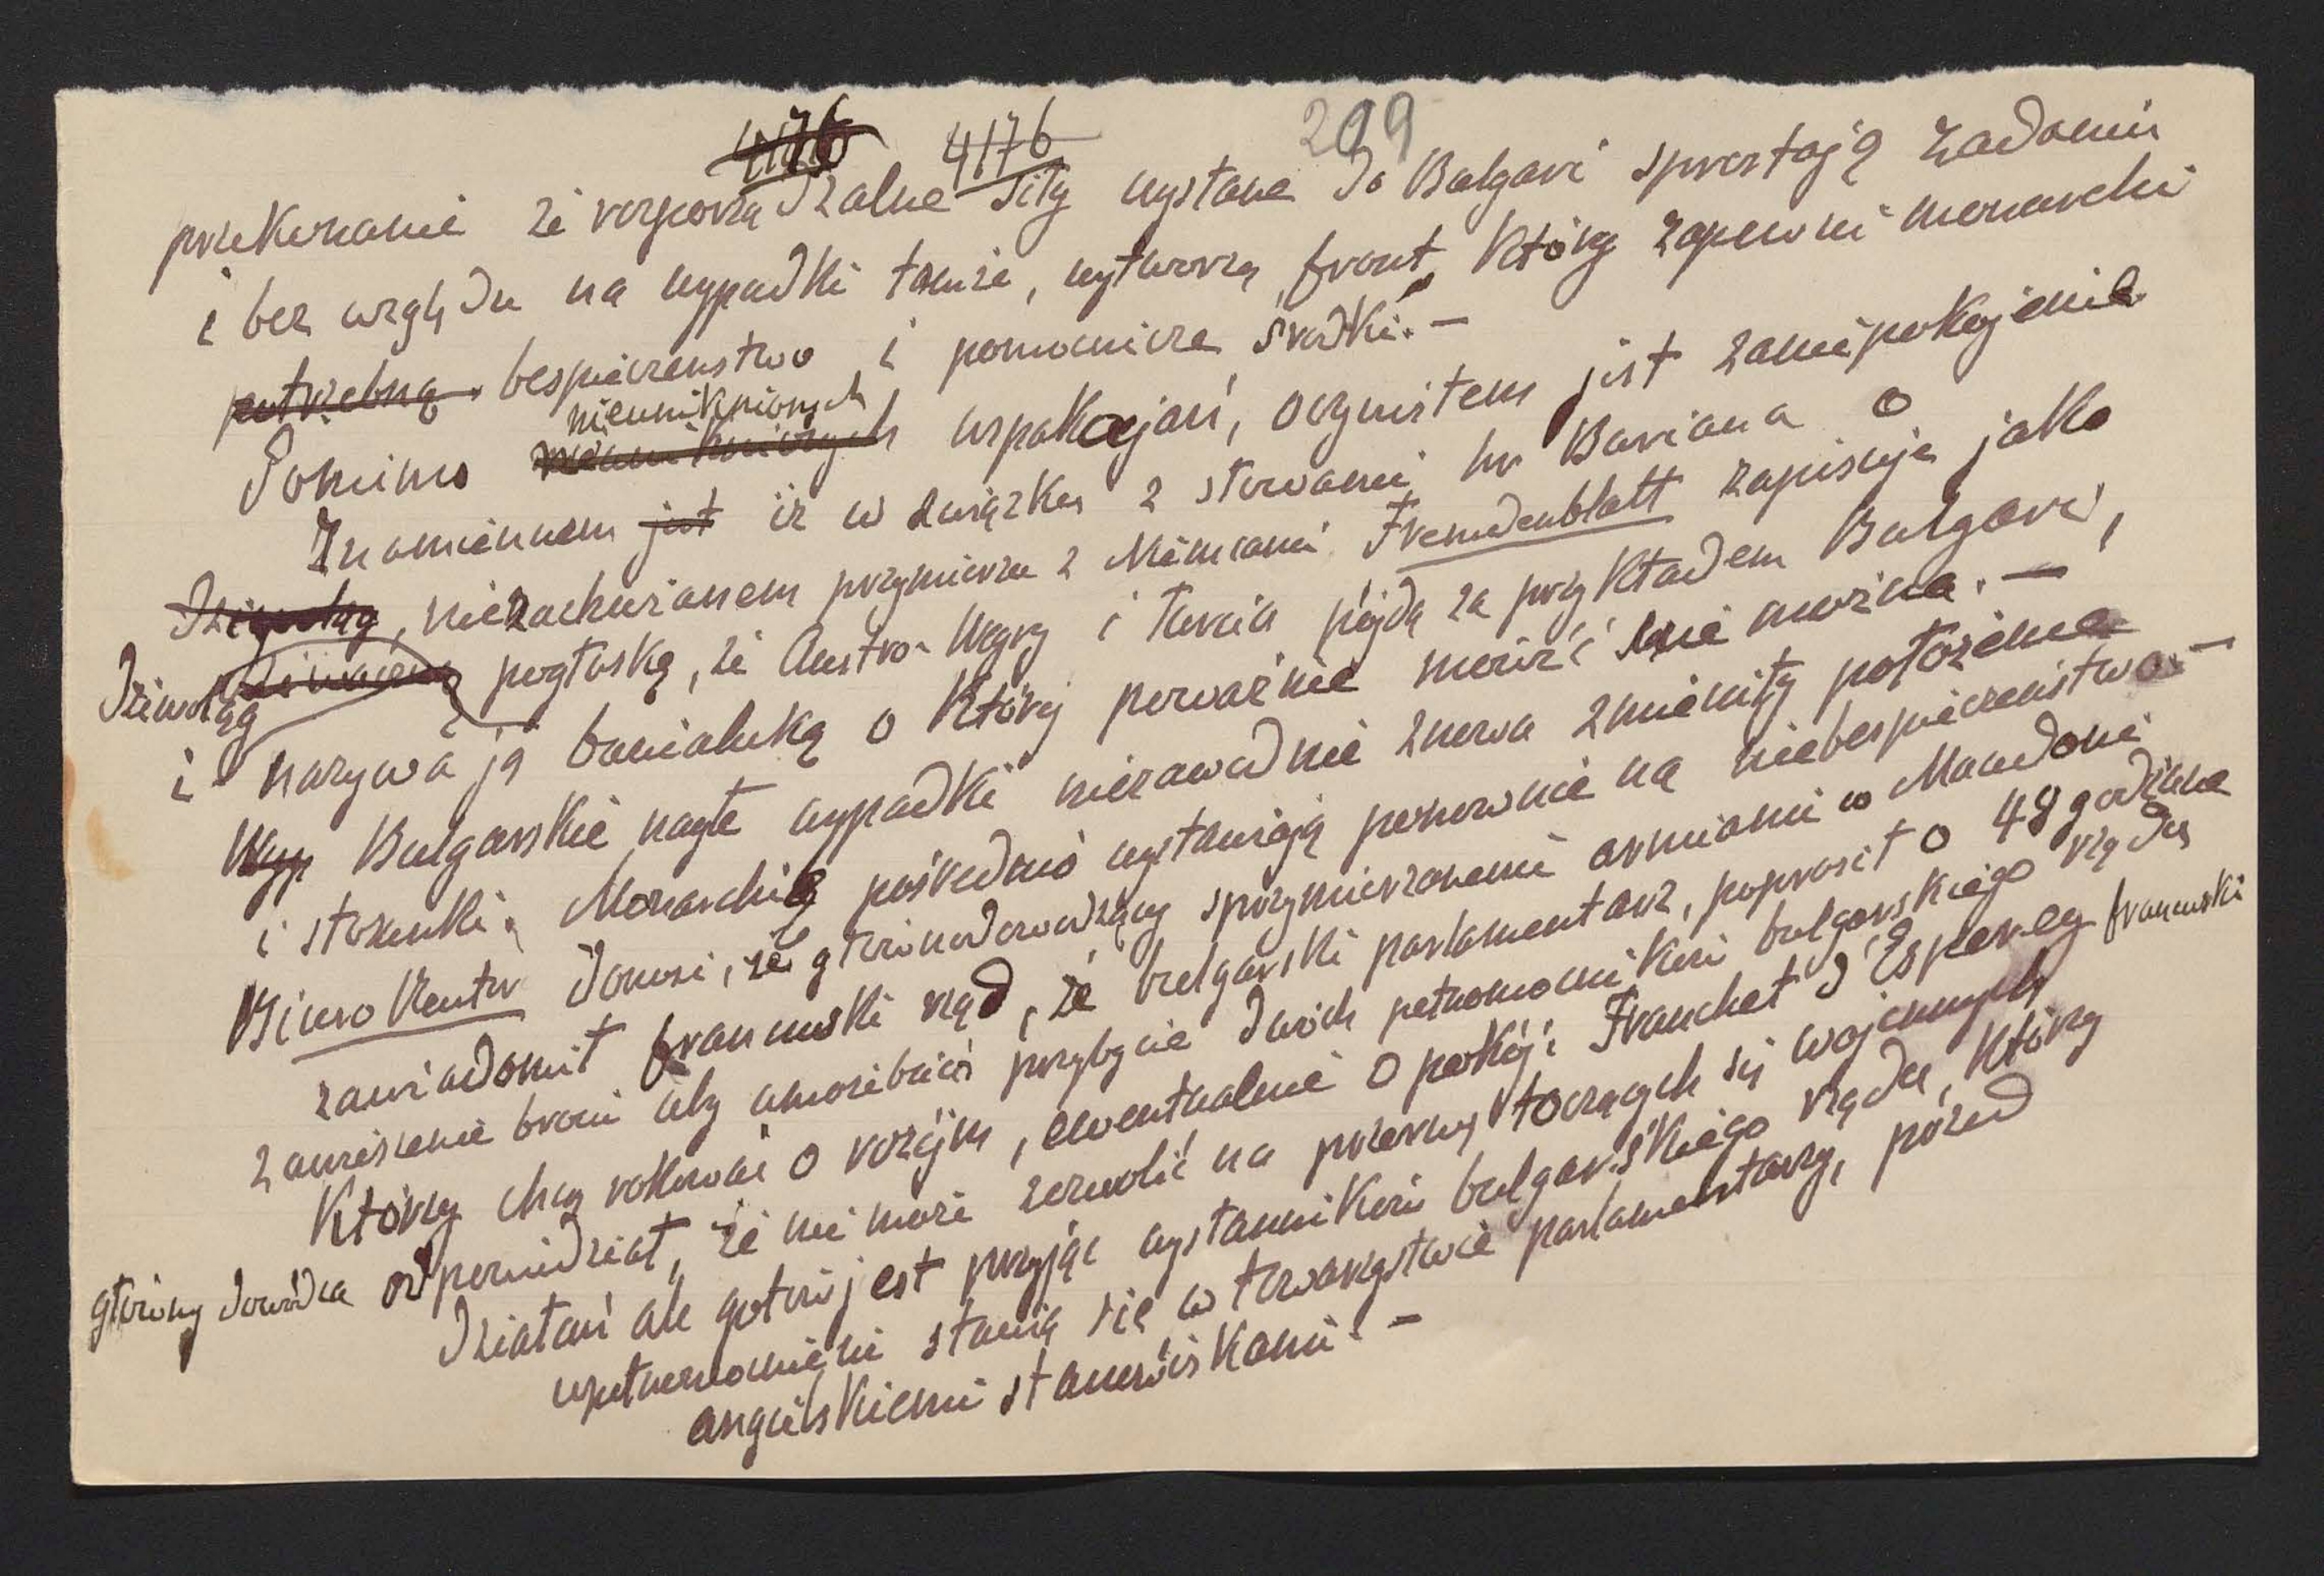 4176 4176 299
przekonanie że rozporządzalne siły wysłane do Bulgari sprostają zadaniu
i bez względu na wypadki tamże, wytworzą front, który zapewni monarchi
potrzebną bespieczenstwo i pomocnicze środki. -
nieuniknionych
Pomimo nieuniknionych uspakajań, oczywistem jest zaniepokojenie
Znamiennem jest iż w związku z słowami hr Buriana o
niezachwianem przymierzu z Niemcami Fremdenblatt zapisuje jako
Dziwoląg pogłoskę, że Austro-Węgry i Turcia pójdą za przykładem Bulgari,
i nazywa ją banialuką o której poważnie mówić nie można. -
Wyp Bulgarskie nagłe wypadki niezawodnie znowu zmieniły położenie
i stosunki. Monarchię pośrednio wystawiają ponownie na niebespieczenstwo. -
Biuro Reuter donosi, że głównodowodzący sprzymierzonemi armiami w Macedoni
zawiadomił francuski rząd, że bulgarski parlamentarz, poprosił o 48 godzinne
zawieszenie broni aby umożebnić przybycie dwóch pełnomocników bulgarskiego rządu
Którzy chcą rokować o rozejm, ewentualnie o pokój. Franchet d'Esperey francuski
główny dowódca odpowiedział, że nie może zezwolić na przerwę toczących się wojennych
działań ale gotów jest przyjąć wysłanników bulgarskiego rządu, którzy
upełnomocnieni stawią się w towarzystwie parlamentarzy, przed
angielskiemi stanowiskami. -